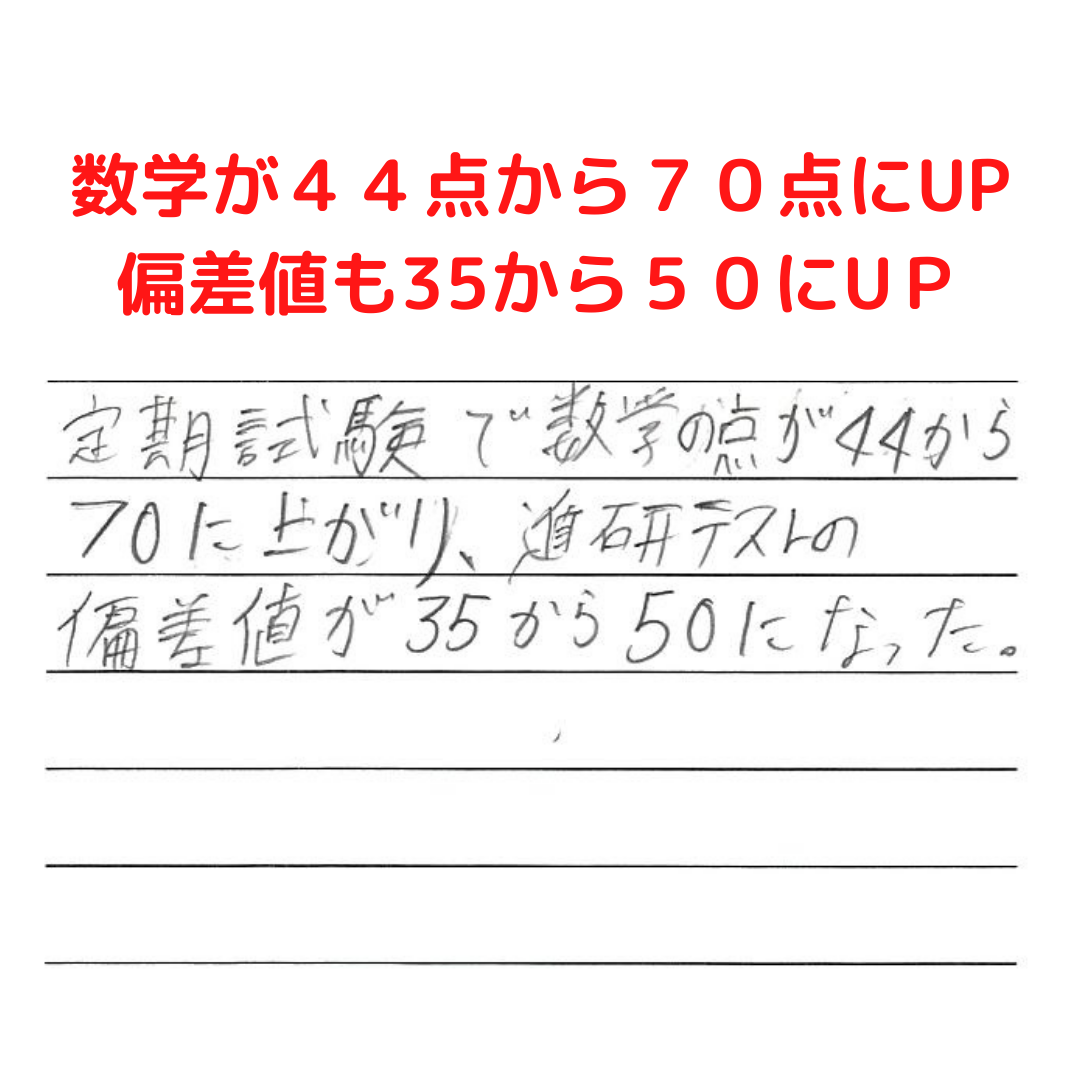 数学が４４点から７０点にUP
偏差値も35から５０にUＰ
定期試験で数学の点が44から
70に上がり、進研テストの
偏差値が35から50になった。